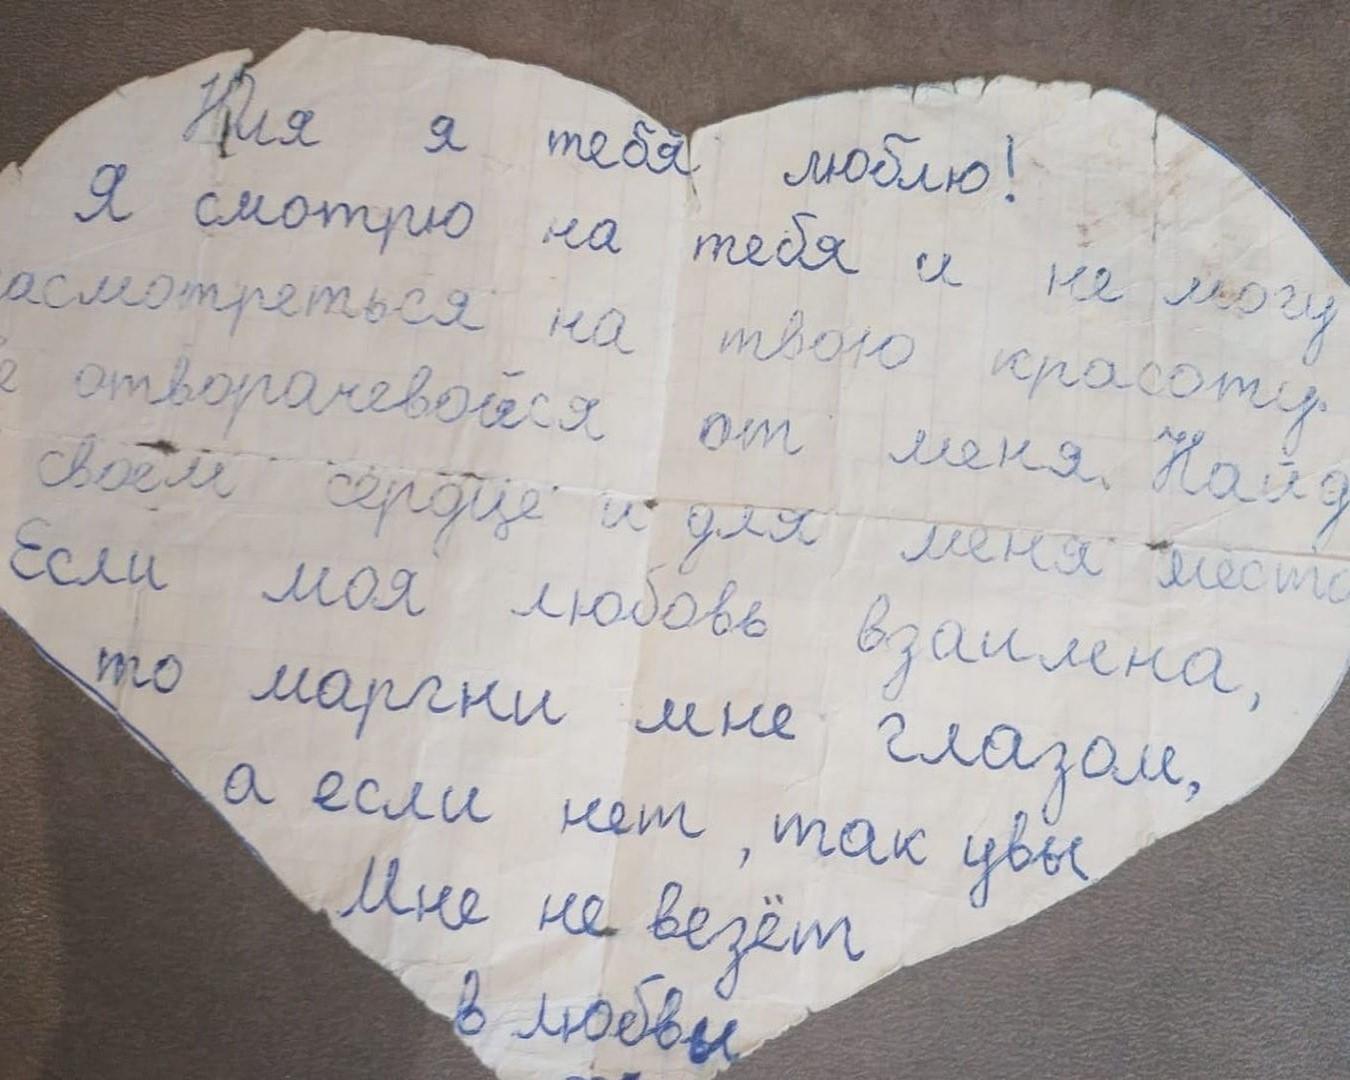 я тебя люблю!
Я смотрю на тебя и не могу
асмотреться на твою красоту.
е отворачевойся от меня. Найд
своем сердце и для меня место
Если моя любовь взаимена,
то маргни мне глазом,
а если нет, так увы
Мне не везёт
в любви